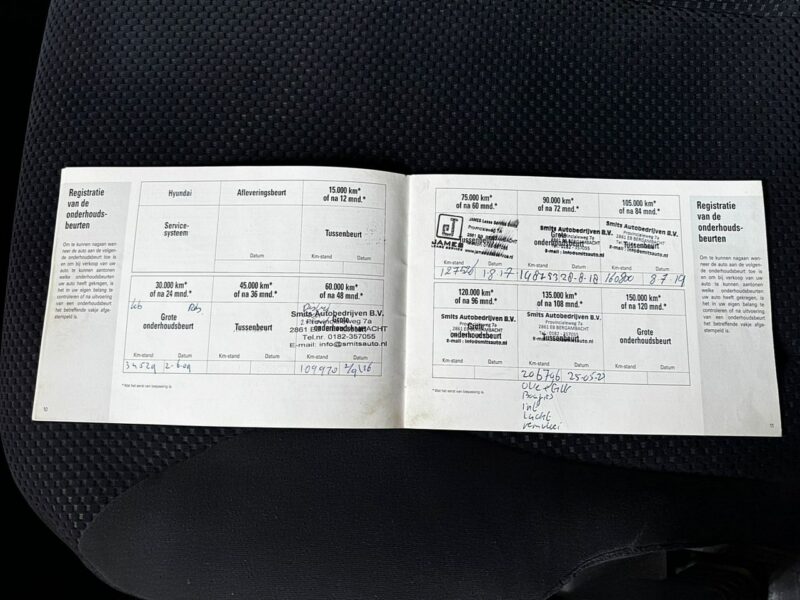 Registratie
van de
onderhouds-
beurten
Om te kunnen nagaan wan-
neer de auto aan de volgen-
de onderhoudsbeurt toe is
en om bij verkoop van uw
auto te kunnen aantonen
welke onderhoudsbeurten
uw auto heeft gekregen, is
het in uw eigen belang dat
u controleert of na uitvoering
van een onderhoudsbeurt
het betreffende vakje afge-
stempeld is.
Hyundai
Afleveringsbeurt
15.000 km*
of na 12 mnd.*
Service-
systeem
Tussenbeurt
Datum
Km-stand Datum
30.000 km*
of na 24 mnd.*
45.000 km*
of na 36 mnd.*
60.000 km*
of na 48 mnd.*
Grote
onderhoudsbeurt
Tussenbeurt
Grote
onderhoudsbeurt
Smits Autobedrijven B.V.
Provincialeweg 7a
2861 EB BERGAMBACHT
Tel.nr. 0182-357055
E-mail: info@smitsauto.nl
Km-stand Datum
Km-stand Datum
Km-stand Datum
34529 2-6-09
109970
* Wat het eerst van toepassing is.
10
75.000 km*
of na 60 mnd.*
90.000 km*
of na 72 mnd.*
105.000 km*
of na 84 mnd.*
JAMES
Tussenbeurt
Smits Autobedrijven B.V.
Grote
onderhoudsbeurt
Smits Autobedrijven B.V.
Provincialeweg 7a
2861 EB BERGAMBACHT
Tussenbeurt
Km-stand Datum
Km-stand Datum
Km-stand Datum
148753 28-8-18
160800 8-7-19
120.000 km*
of na 96 mnd.*
135.000 km*
of na 108 mnd.*
150.000 km*
of na 120 mnd.*
Smits Autobedrijven B.V.
Grote
onderhoudsbeurt
E-mail: info@smitsauto.nl
Smits Autobedrijven B.V.
Provincialeweg 7a
2861 EB BERGAMBACHT
Tel.: 0182-357055
Tussenbeurt
E-mail: info@smitsauto.nl
Grote
onderhoudsbeurt
Km-stand Datum
Km-stand Datum
Km-stand Datum
206796
Olie + filter
Bougies
int
Lucht
* Wat het eerst van toepassing is.
Registratie
van de
onderhouds-
beurten
Om te kunnen nagaan wan-
neer de auto aan de volgen-
de onderhoudsbeurt toe is
en om bij verkoop van uw
auto te kunnen aantonen
welke onderhoudsbeurten
uw auto heeft gekregen, is
het in uw eigen belang te
controleren of na uitvoering
van een onderhoudsbeurt
het betreffende vakje afge-
stempeld is.
11